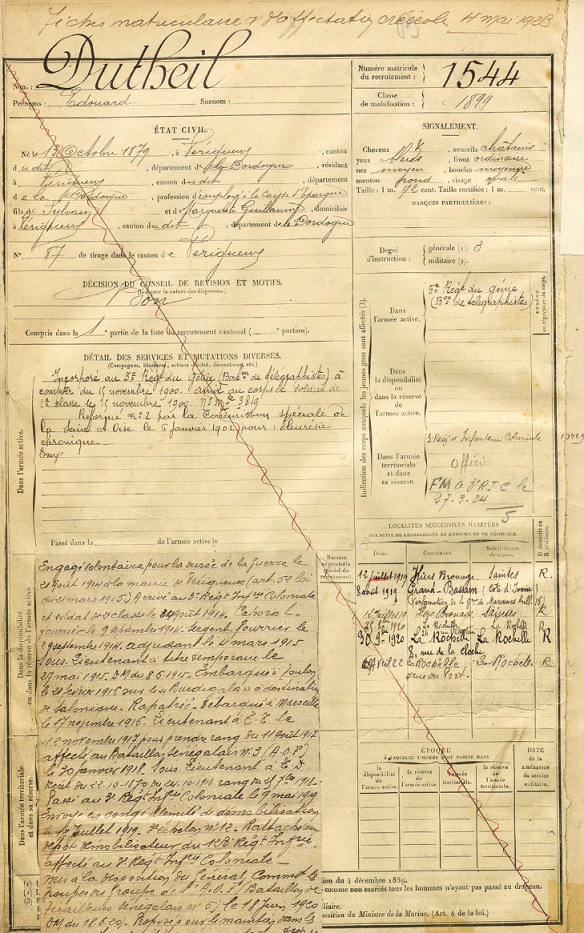 Fiches matriculaire & d'affectation 4 mai 1933
Nom : Dutheil
Prénoms : Edouard Surnom :
Numéro matricule du recrutement : 1544
Classe de mobilisation : 1899
ÉTAT CIVIL.
Né le 13 Octobre 1879, à Périgueux, canton
du dit, département de la Dordogne, résidant
à Périgueux, canton du dit, département
de la Dordogne, profession d'employé à la Caisse d'Epargne
fils de Sylvain et de Marguerite Guillaumy, domiciliés
à Périgueux, canton du dit, département de la Dordogne
N° 57 de tirage dans le canton de Périgueux
SIGNALEMENT.
Cheveux sourcils châtains
yeux bleus front ordinaire
nez moyen bouche moyenne
menton rond visage ovale
Taille : 1 m. 72 cent. Taille rectifiée : 1 m. cent.
MARQUES PARTICULIÈRES :
Degré d'instruction : générale (1). 3
militaire (2).
DÉCISION DU CONSEIL DE RÉVISION ET MOTIFS.
Bon
Compris dans la 1re partie de la liste du recrutement cantonal ( portion).
DÉTAIL DES SERVICES ET MUTATIONS DIVERSES.
(Campagnes, blessures, actions d'éclat, décorations, etc.)
Incorporé au 5e Régt du Génie (Baton de télégraphistes) à
compter du 15 novembre 1900. Arrivé au corps et soldat de
2e classe le 15 novembre 1900. N° Mle 3819
Réformé n° 2 par la Commission spéciale de
la Seine et Oise le 5 janvier 1902 pour : Pleurésie
chronique.
Dans l'armée active.
Passé dans la de l'armée active le
Indication des corps auxquels les jeunes gens sont affectés (3).
Dans l'armée active.
5e Régt du génie
(Bon de télégraphistes)
Dans la disponibilité ou dans la réserve de l'armée active.
Dans l'armée territoriale et dans sa réserve.
3 Régt d'Infanterie Coloniale
Officier
27-3-24
LOCALITÉS SUCCESSIVES HABITÉES
PAR SUITE DE CHANGEMENTS DE DOMICILE OU DE RÉSIDENCE.
Dates. Communes. Subdivisions de région. D domicile ou R résidence.
12 juillet 1919 Hiers Brouage Saintes R.
8 août 1919 Grand-Bassam (Côte d'Ivoire)
30 9bre 1920 La Rochelle La Rochelle R
8, rue de la cloche
La Rochelle La Rochelle R
Dans la disponibilité ou dans la réserve de l'armée active.
Engagé volontaire pour la durée de la guerre le
21 août 1914 à la mairie de Périgueux (art. de loi
du 21 mars 1905). Arrivé au 3e Régt Infie Coloniale
et soldat de 2e classe le 24 août 1914. Caporal-
fourrier le 9 septembre 1914. Sergent fourrier le
29 septembre 1914. Adjudant le 4 mars 1915
Sous-Lieutenant à titre temporaire le
27 mai 1915. DM du 8.6.1915. Embarqué à Toulon
le 21 février 1915 sur la "Burdigala" à destination
de Salonique. Rapatrié. Débarqué à Marseille
le 17 novembre 1916. Lieutenant à T.T. le
12 novembre 1917 pour prendre rang du 11 août 1917
affecté au Bataillon Sénégalais n° 3 (A.O.F.)
le 30 janvier 1918. Sous Lieutenant à T.D.
Passé au 3e Régt Infie Coloniale le 9 mai 1919
Envoyé en congé illimité de démobilisation
le 10 juillet 1919. Echelon n° 12. Rattaché au
dépôt démobilisateur du 123e Régt Infie
affecté au 3e Régt Infie Coloniale -
mis à la disposition du Général Commdt le
groupe des troupes de l'A.O.F. (Bataillon de
tirailleurs sénégalais n° 5) le 18 juin 1920
DM du 18.6.20.
Dans l'armée territoriale et dans sa réserve.
ÉPOQUE
À LAQUELLE L'HOMME DOIT PASSER DANS
la disponibilité de l'armée active.
la réserve de l'armée active.
l'armée territoriale.
la réserve de l'armée territoriale.
DATE de la LIBÉRATION du service militaire.
comme non exercés tous les hommes n'ayant pas passé au drapeau.
position du Ministre de la Marine. (Art. 4 de la loi.)